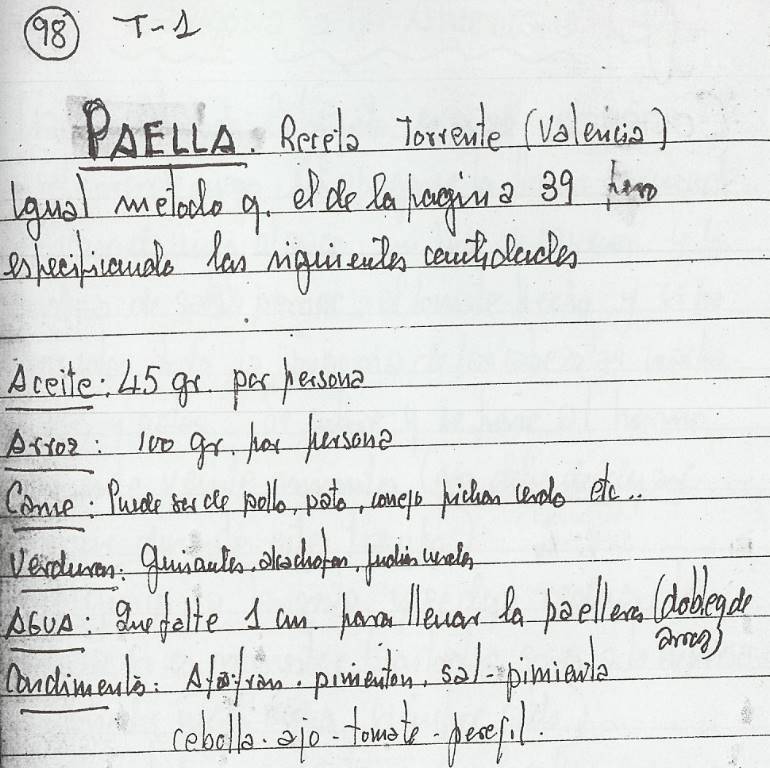 98 T-1
PAELLA. Receta Torrente (Valencia)
Igual metodo q. el de la pagina 39 pero
especificando las siguientes cantidades
Aceite: 45 gr. por persona
Arroz: 100 gr. por persona
Carne: Puede ser de pollo, pato, conejo pichon cerdo etc..
Verduras: guisantes, alcachofas, judias verdes
AGUA: Que falte 1 cm para llenar la paellera (doble q de
arroz)
Condimento: Azafran. pimenton, sal-pimienta
cebolla-ajo-tomate-perejil.